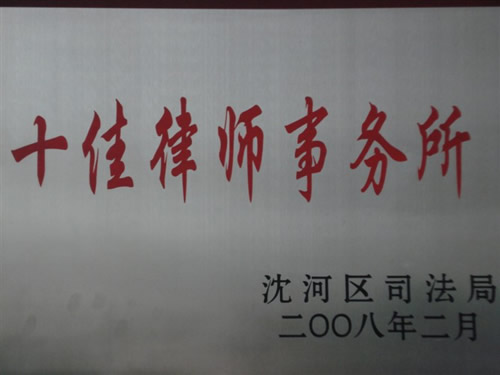 十佳律师事务所
沈河区司法局
二〇〇八年二月